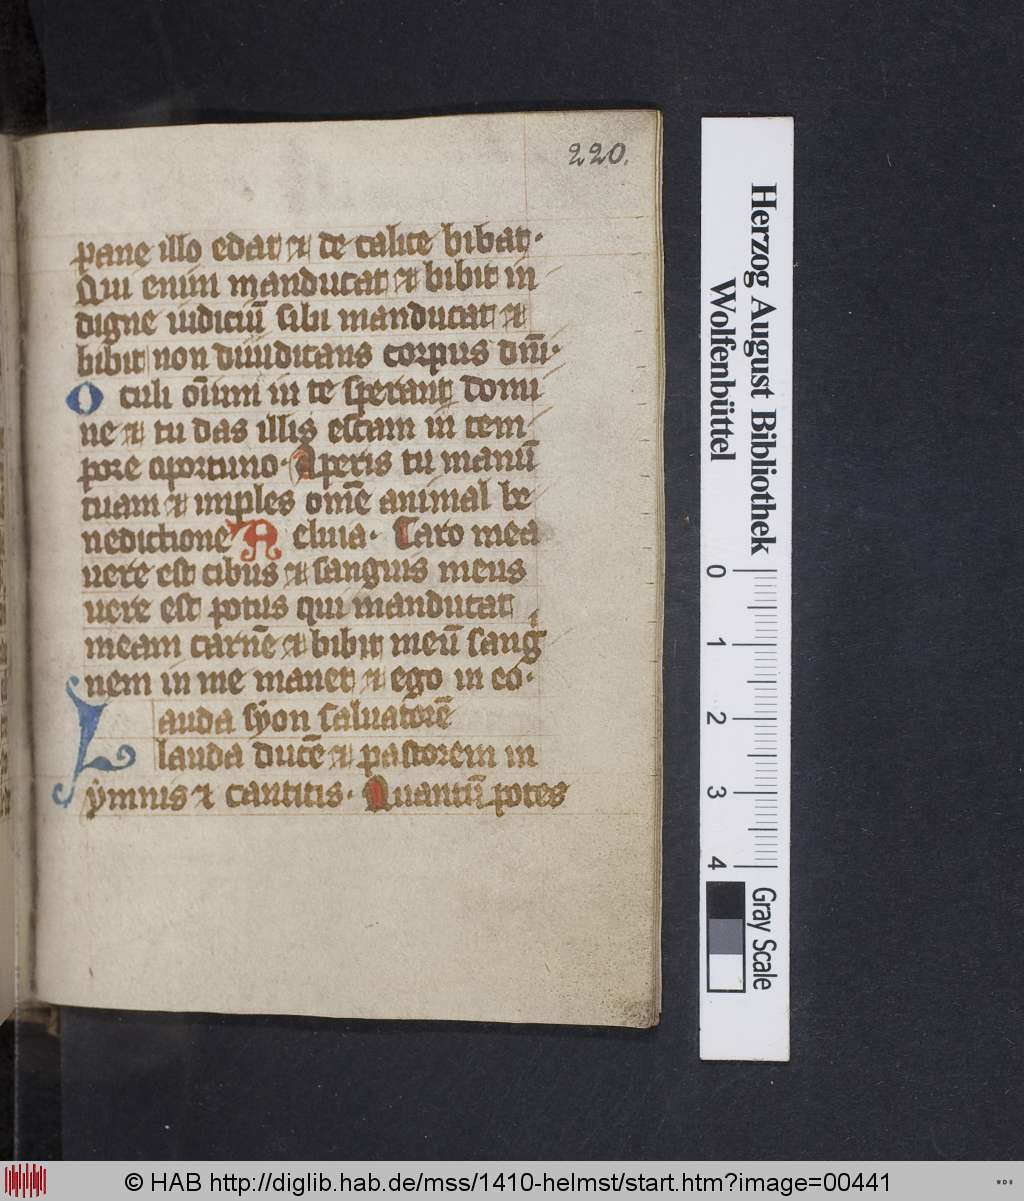 220.
pane illo edat et de calice bibat·
Qui enim manducat et bibit in
digne iudiciū sibi manducat et
bibit non diiudicans corpus dni̅·
Oculi oīum in te sperant domi
ne et tu das illis escam in tem
pore oportuno· Aperis tu manū
tuam et imples om̄e animal be
nedictione A eluia· Caro mea
uere est cibus et sanguis meus
uere est potus qui manducat
meam carnē et bibit meū sangⁱ
nem in me manet et ego in eo·
Lauda syon saluatorē
lauda ducē et pastorem in
ẏmnis et canticis· Quantū potes
Herzog August Bibliothek
Wolfenbüttel
0 1 2 3 4
Gray Scale
© HAB http://diglib.hab.de/mss/1410-helmst/start.htm?image=00441